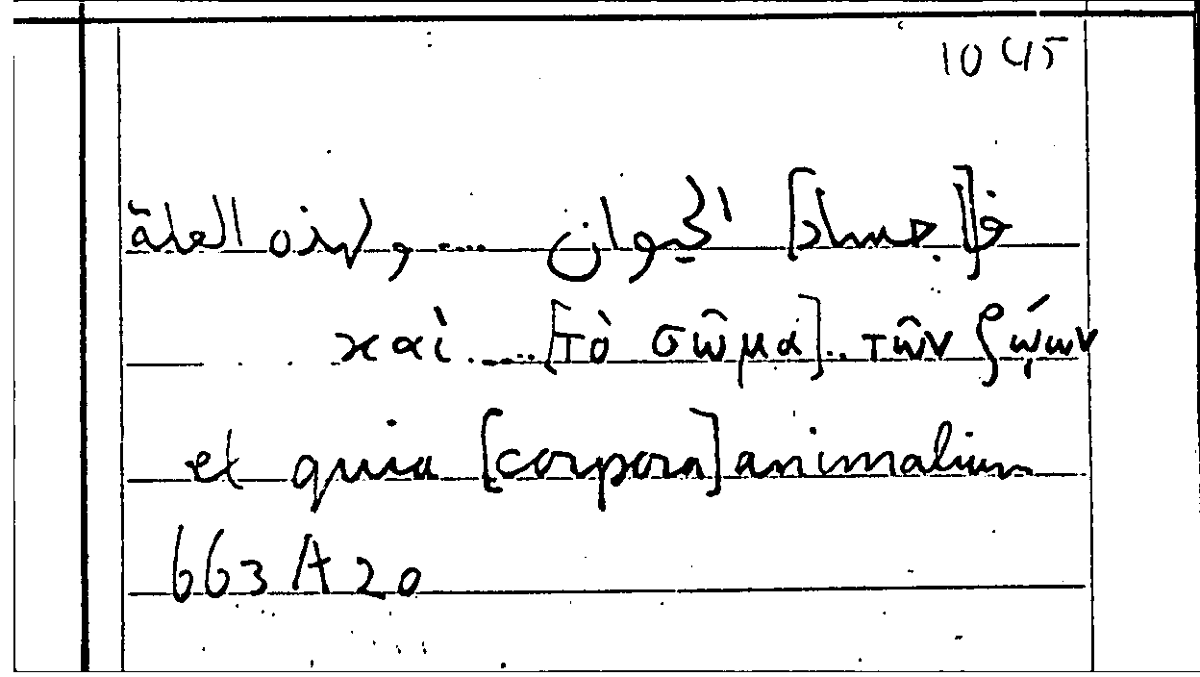 1045
فـ[أجساد] الحيوان .... ولهذه العلة
καὶ ..... [τὸ σῶμα] .. τῶν ζῴων
et quia [corpora] animalium
663 A 20